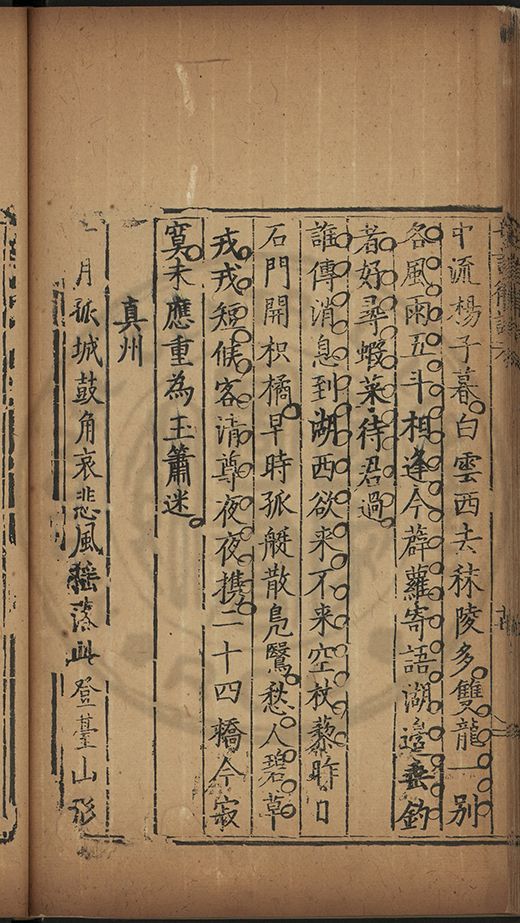 中流楊子暮白雲西去秣陵多雙龍一別
各風雨五斗相逢今薜蘿寄語湖邊垂釣
者好尋蝦菜待君過
誰傳消息到湖西欲來不來空杖藜昨日
石門開枳橘早時孤艇散鳧鷖愁人碧草
戎戎短候客清尊夜夜携二十四橋今寂
寞未應重為玉簫迷
真州
月孤城鼓角哀悲風揺落此登臺山形